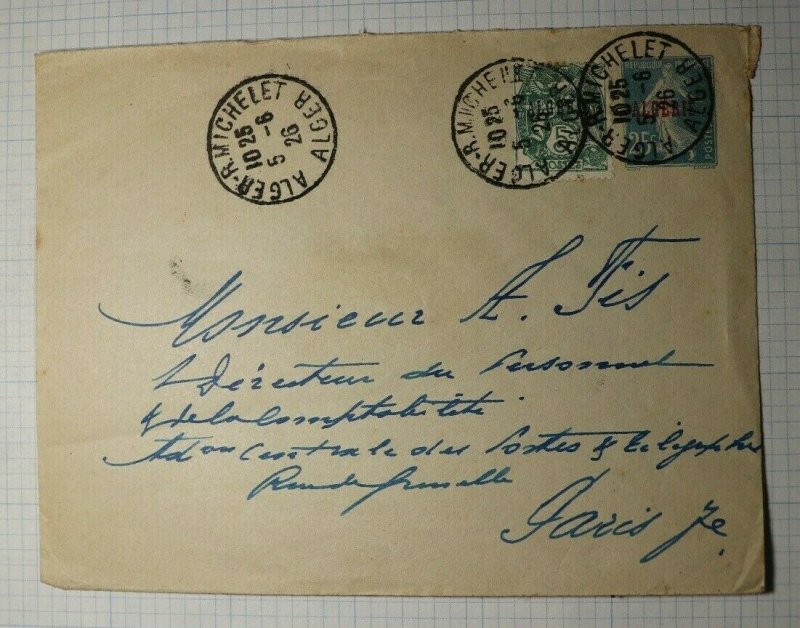 ALGER-R.MICHELET ALGER
10 25
5 -6
26
ALGER-R.MICHELET ALGER
10 25
5 -6
26
ALGER-R.MICHELET ALGER
10 25
5 -6
26
ALGERIE
25c
Monsieur A. Fis
Directeur du Personnel
& de la Comptabilité
Adon Centrale des Postes & télégraphes
Rue de Grenelle
Paris 7e